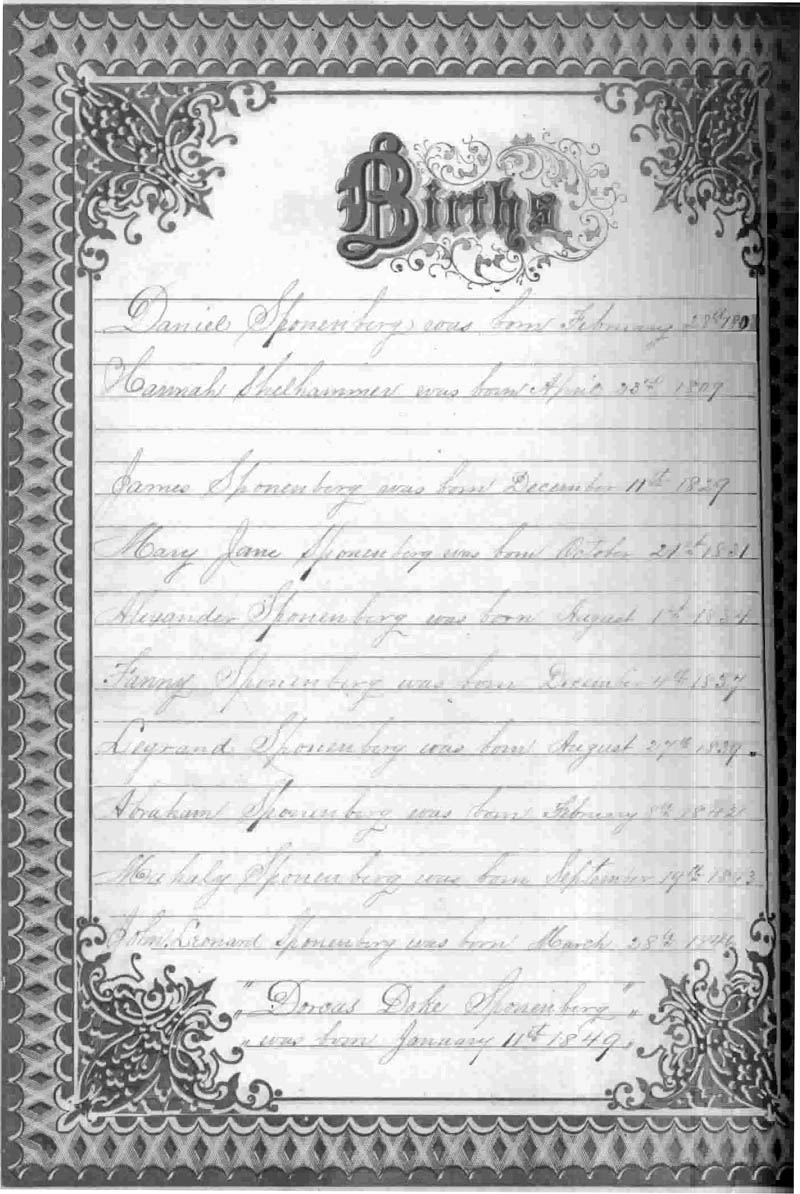 Births
Daniel Sponenberg was born February 28th 1801
Hannah Shelhammer was born April 23rd 1809
James Sponenberg was born December 11th 1829
Mary Jane Sponenberg was born October 21st 1831
Alexander Sponenberg was born August 1st 1834
Fanny Sponenberg was born December 4th 1837
Legrand Sponenberg was born August 27th 1839.
Abraham Sponenberg was born February 8th 1842
Mahaly Sponenberg was born September 19th 1843
John Leonard Sponenberg was born March 28th 1846
"Dorcas Doke Sponenberg"
"was born January 11th 1849"